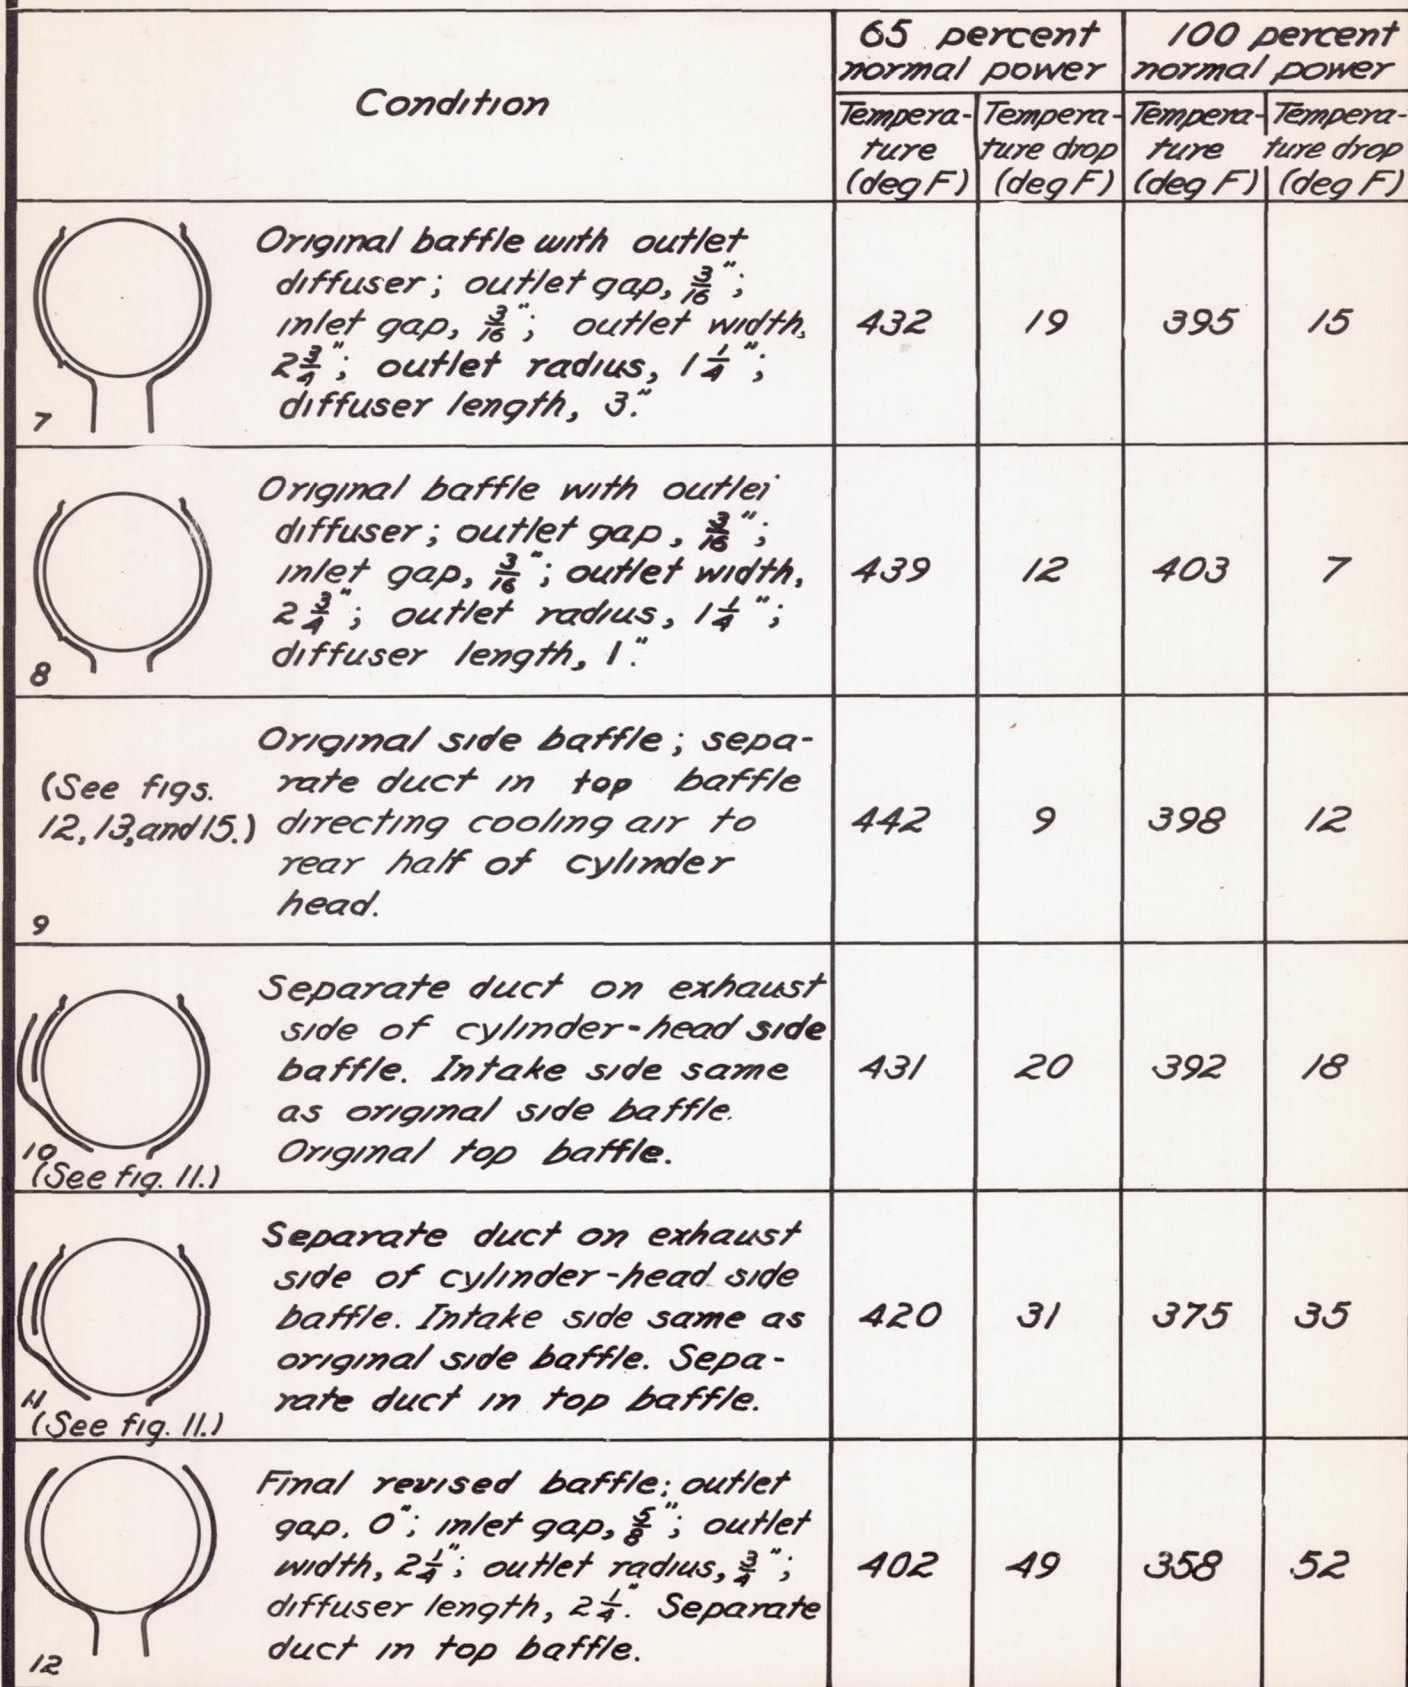 Condition
65 percent
normal power
100 percent
normal power
Tempera-
ture
(deg F)
Tempera-
ture drop
(deg F)
Tempera-
ture
(deg F)
Tempera-
ture drop
(deg F)
7
Original baffle with outlet
diffuser; outlet gap, 3/16";
inlet gap, 3/16"; outlet width,
2 3/4"; outlet radius, 1 1/4";
diffuser length, 3."
432 19 395 15
8
Original baffle with outlet
diffuser; outlet gap, 3/16";
inlet gap, 3/16"; outlet width,
2 3/4"; outlet radius, 1 1/4";
diffuser length, 1."
439 12 403 7
(See figs.
12, 13, and 15.)
9
Original side baffle; sepa-
rate duct in top baffle
directing cooling air to
rear half of cylinder
head.
442 9 398 12
10
(See fig. 11.)
Separate duct on exhaust
side of cylinder-head side
baffle. Intake side same
as original side baffle.
Original top baffle.
431 20 392 18
11
(See fig. 11.)
Separate duct on exhaust
side of cylinder-head side
baffle. Intake side same as
original side baffle. Sepa-
rate duct in top baffle.
420 31 375 35
12
Final revised baffle; outlet
gap, 0"; inlet gap, 5/8"; outlet
width, 2 1/4"; outlet radius, 3/4";
diffuser length, 2 1/4". Separate
duct in top baffle.
402 49 358 52